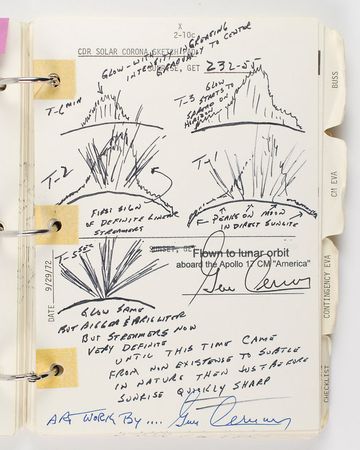 X
2-10c
CDR SOLAR CORONA SKETCH
SUNRISE, GET 232-55
GLOW - WITH INCREASING
INTENSITY GRADUALLY TO CENTER
T-6 MIN
T-3 GLOW
STARTS TO
SPREAD ON
HORIZON
T-2
FIRST SIGN
OF DEFINITE LINEAR
STREAMERS
T-1
PEAKS ON MOON
IN DIRECT SUNLITE
T-5 SEC
SUNSET, GET
Flown to lunar orbit
aboard the Apollo 17 CM "America"
Gene Cernan
GLOW SAME
BUT BIGGER & BRIGHTER
BUT STREAMERS NOW
VERY DEFINITE
UNTIL THIS TIME CAME
FROM NON EXISTENSE TO SUBTLE
IN NATURE THEN JUST BEFORE
SUNRISE QUICKLY SHARP
ART WORK BY .... Gene Cernan
DATE 9/29/72
BUSS
CM EVA
CONTINGENCY EVA
CHECKLIST